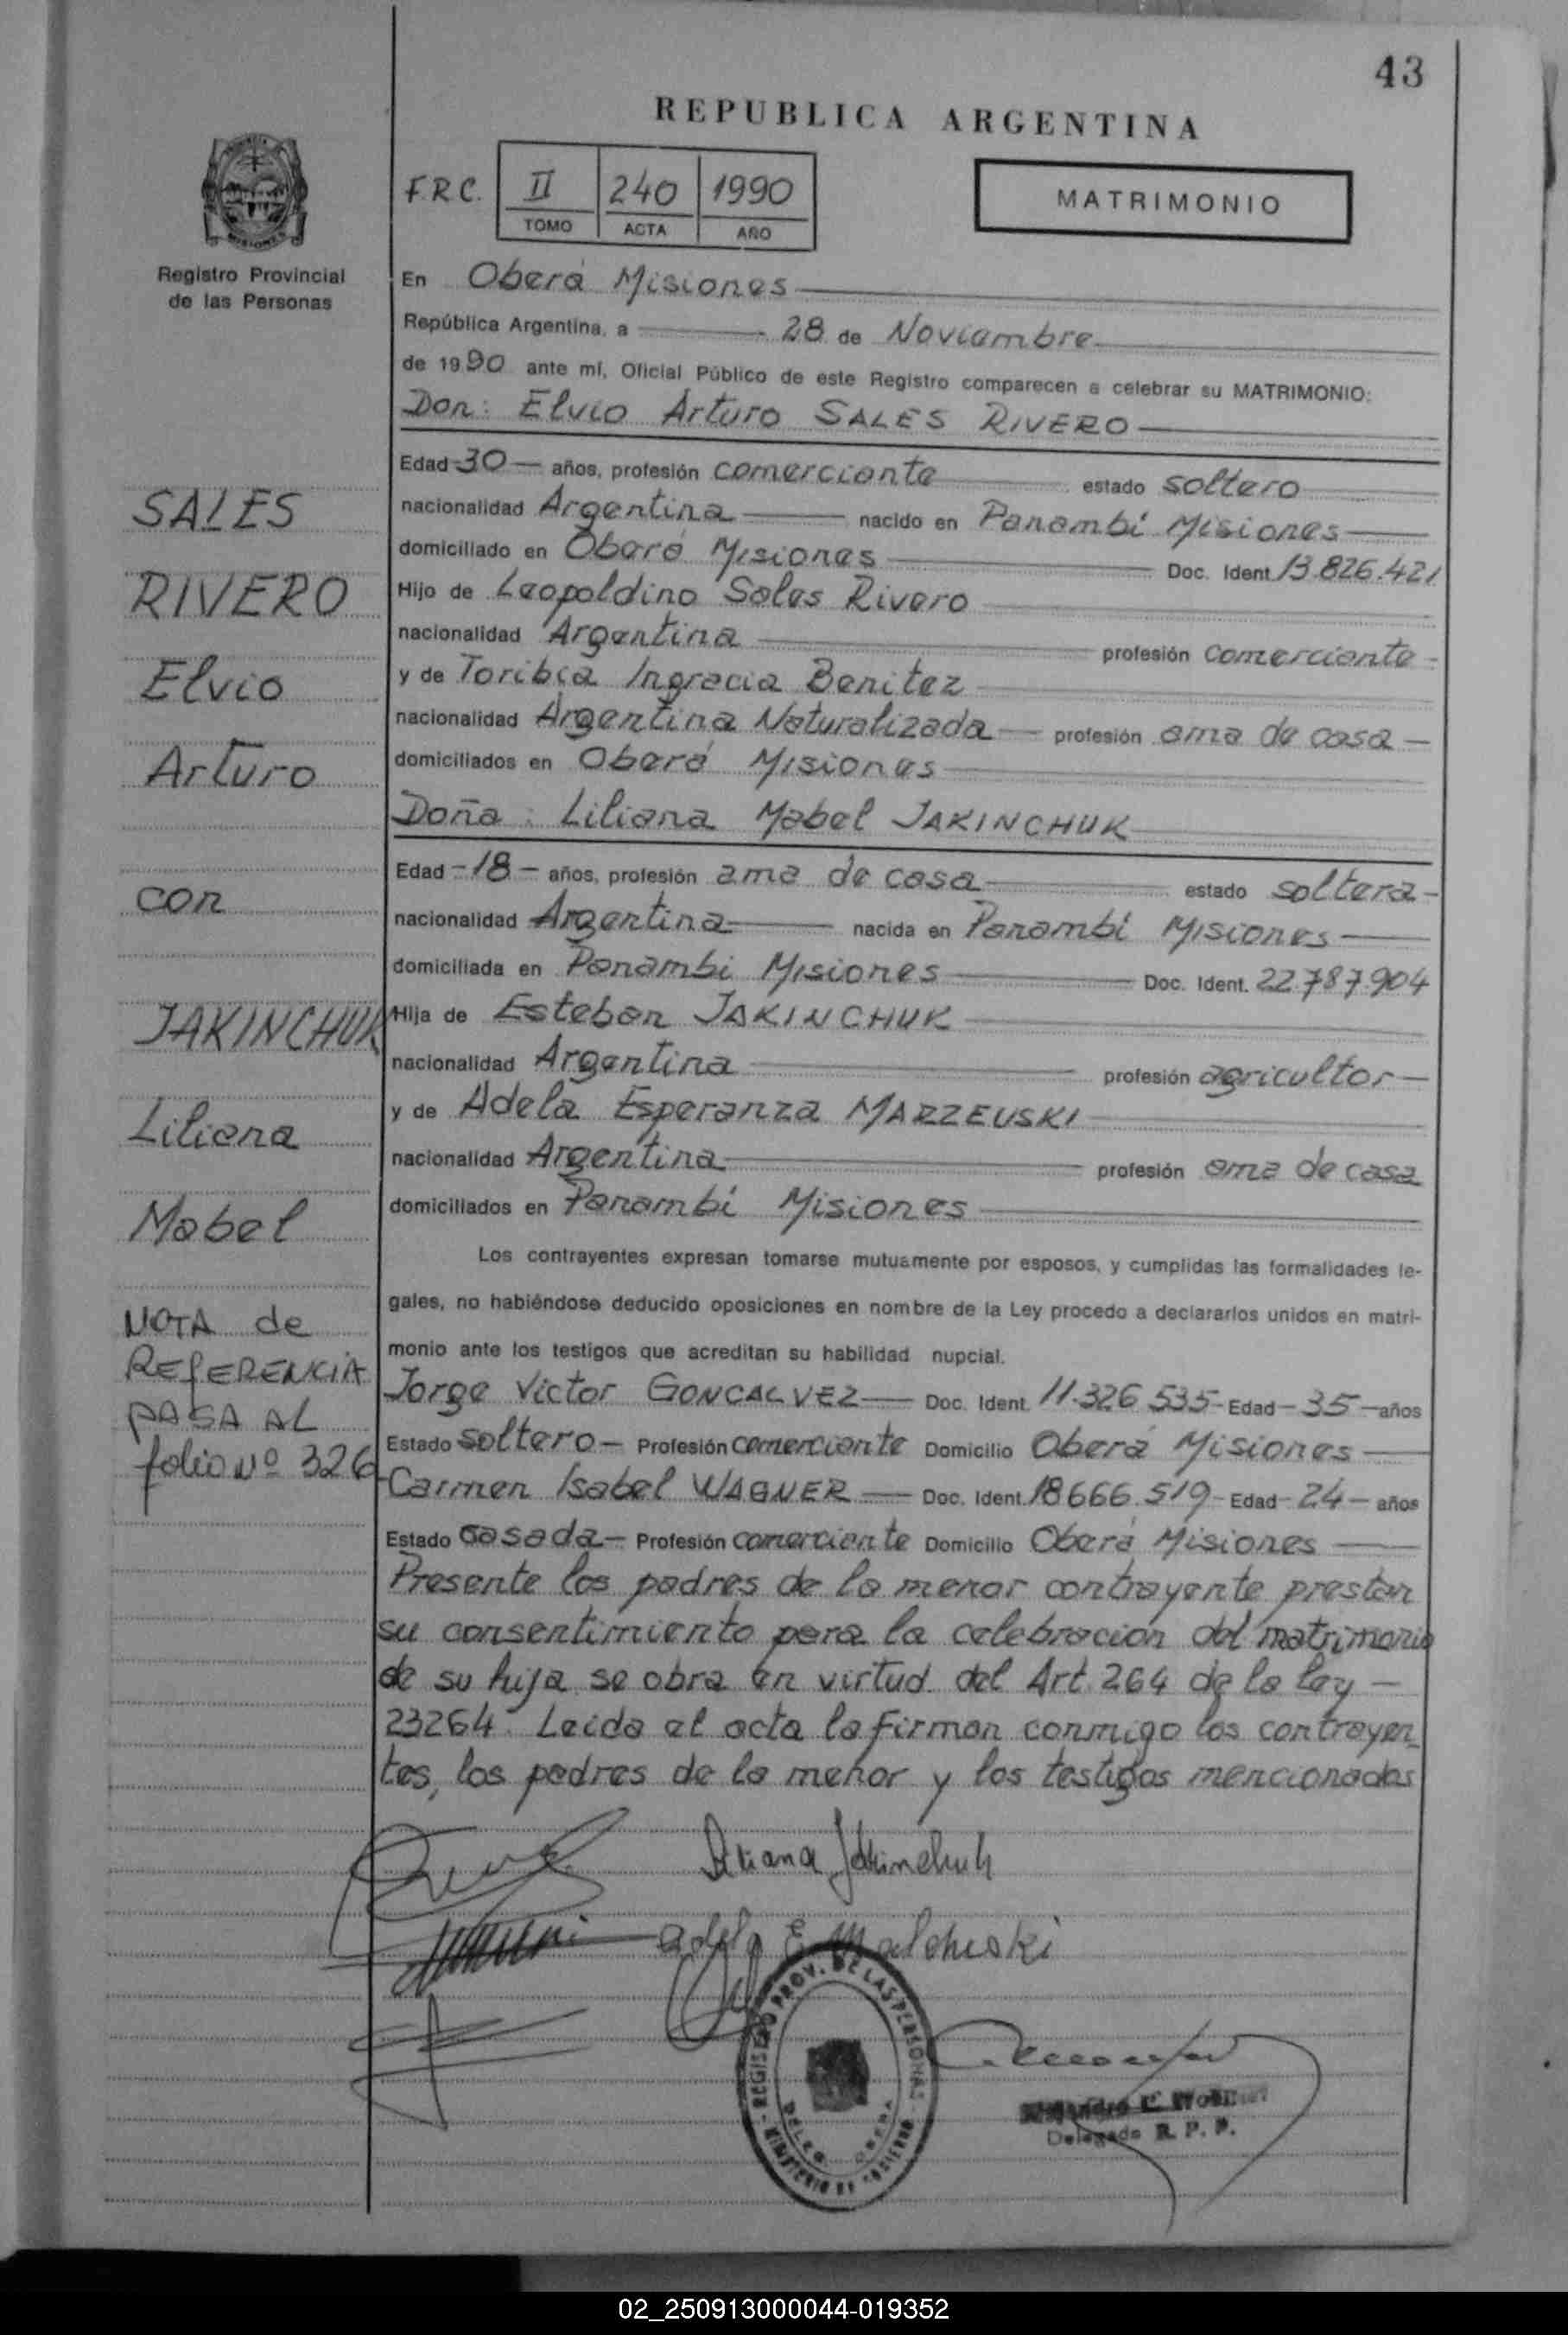 43
REPUBLICA ARGENTINA
F.R.C. II 240 1990
TOMO ACTA AÑO
MATRIMONIO
Registro Provincial
de las Personas
En Oberá Misiones
República Argentina, a 28 de Noviembre
de 1990 ante mí, Oficial Público de este Registro comparecen a celebrar su MATRIMONIO:
Don: Elvio Arturo SALES RIVERO
Edad 30 — años, profesión comerciante estado soltero
nacionalidad Argentina nacido en Panambí Misiones
domiciliado en Oberá Misiones Doc. Ident. 13.826.421
Hijo de Leopoldino Sales Rivero
nacionalidad Argentina profesión comerciante
y de Toribia Ingracia Benitez
nacionalidad Argentina Naturalizada profesión ama de casa
domiciliados en Oberá Misiones
Doña: Liliana Mabel JAKINCHUK
Edad - 18 - años, profesión ama de casa estado soltera
nacionalidad Argentina nacida en Panambí Misiones
domiciliada en Panambi Misiones Doc. Ident. 22.787.904
Hija de Esteban JAKINCHUK
nacionalidad Argentina profesión agricultor
y de Adela Esperanza MARZEUSKI
nacionalidad Argentina profesión ama de casa
domiciliados en Panambí Misiones
Los contrayentes expresan tomarse mutuamente por esposos, y cumplidas las formalidades le-
gales, no habiéndose deducido oposiciones en nombre de la Ley procedo a declararlos unidos en matri-
monio ante los testigos que acreditan su habilidad nupcial.
Jorge Victor GONCALVEZ — Doc. Ident. 11.326.535 - Edad - 35 - años
Estado soltero - Profesión comerciante Domicilio Oberá Misiones
Carmen Isabel WAGNER — Doc. Ident. 18.666.519 - Edad - 24 - años
Estado casada - Profesión comerciante Domicilio Oberá Misiones
Presente los padres de la menor contrayente prestan
su consentimiento para la celebracion del matrimonio
de su hija se obra en virtud del Art. 264 de la ley —
23264. Leida el acta la firman conmigo los contrayen_
tes, los padres de la menor y los testigos mencionados
SALES
RIVERO
Elvio
Arturo
con
JAKINCHUK
Liliana
Mabel
NOTA de
REFERENCIA
PASA AL
folio Nº 326
Liliana Jakinchuk
Adela E
REGISTRO PROV. DE LAS PERSONAS
DELEG. OBERA
MINISTERIO DE GOBIERNO
Delegado R. P. P.
02_250913000044-019352